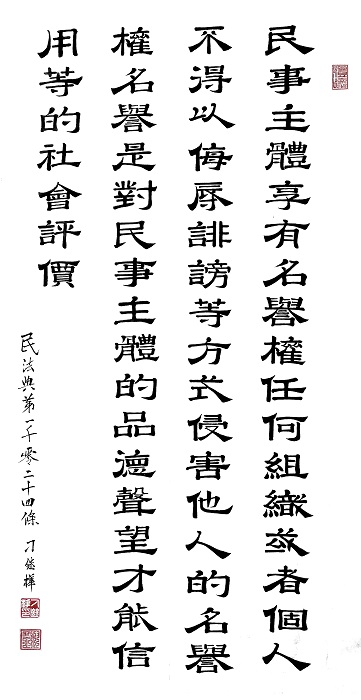 民事主體享有名譽權任何組織或者個人
不得以侮辱誹謗等方式侵害他人的名譽
權名譽是對民事主體的品德聲望才能信
用等的社會評價
民法典第一千零二十四條 刁悠樺